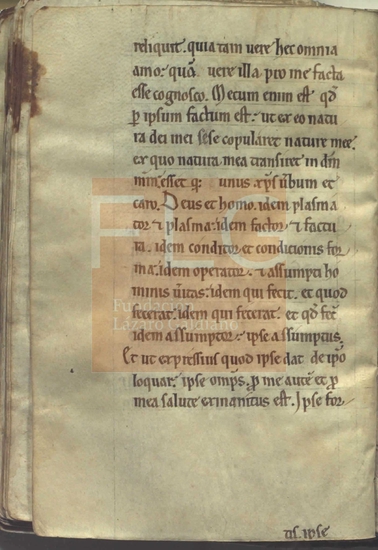 reliquit. quia tam vere hec omnia
amo: quā vere illa pro me facta
esse cognosco. Mecum enim est qd
p ipsum factum est: ut ex eo natu
ra dei mei sese copularet nature mee.
ex quo natura mea transiret in dm
esset unus xps verbum et
caro. Deus et homo. idem plasma
tor & plasma: idem factor & factu
ra. idem conditor et conditionis for
ma: idem operator & assumpti ho
minis idem qui fecit et quod
fecerat: idem qui fecerat et qd
idem assumptor: ipse assumptus.
Et ut expressius quod ipse dat de ipo
loquar: ipse omps, p me aute et p
mea salute exinanitus est. Ipse for
tis. ipse
Fundación
Lázaro Galdiano